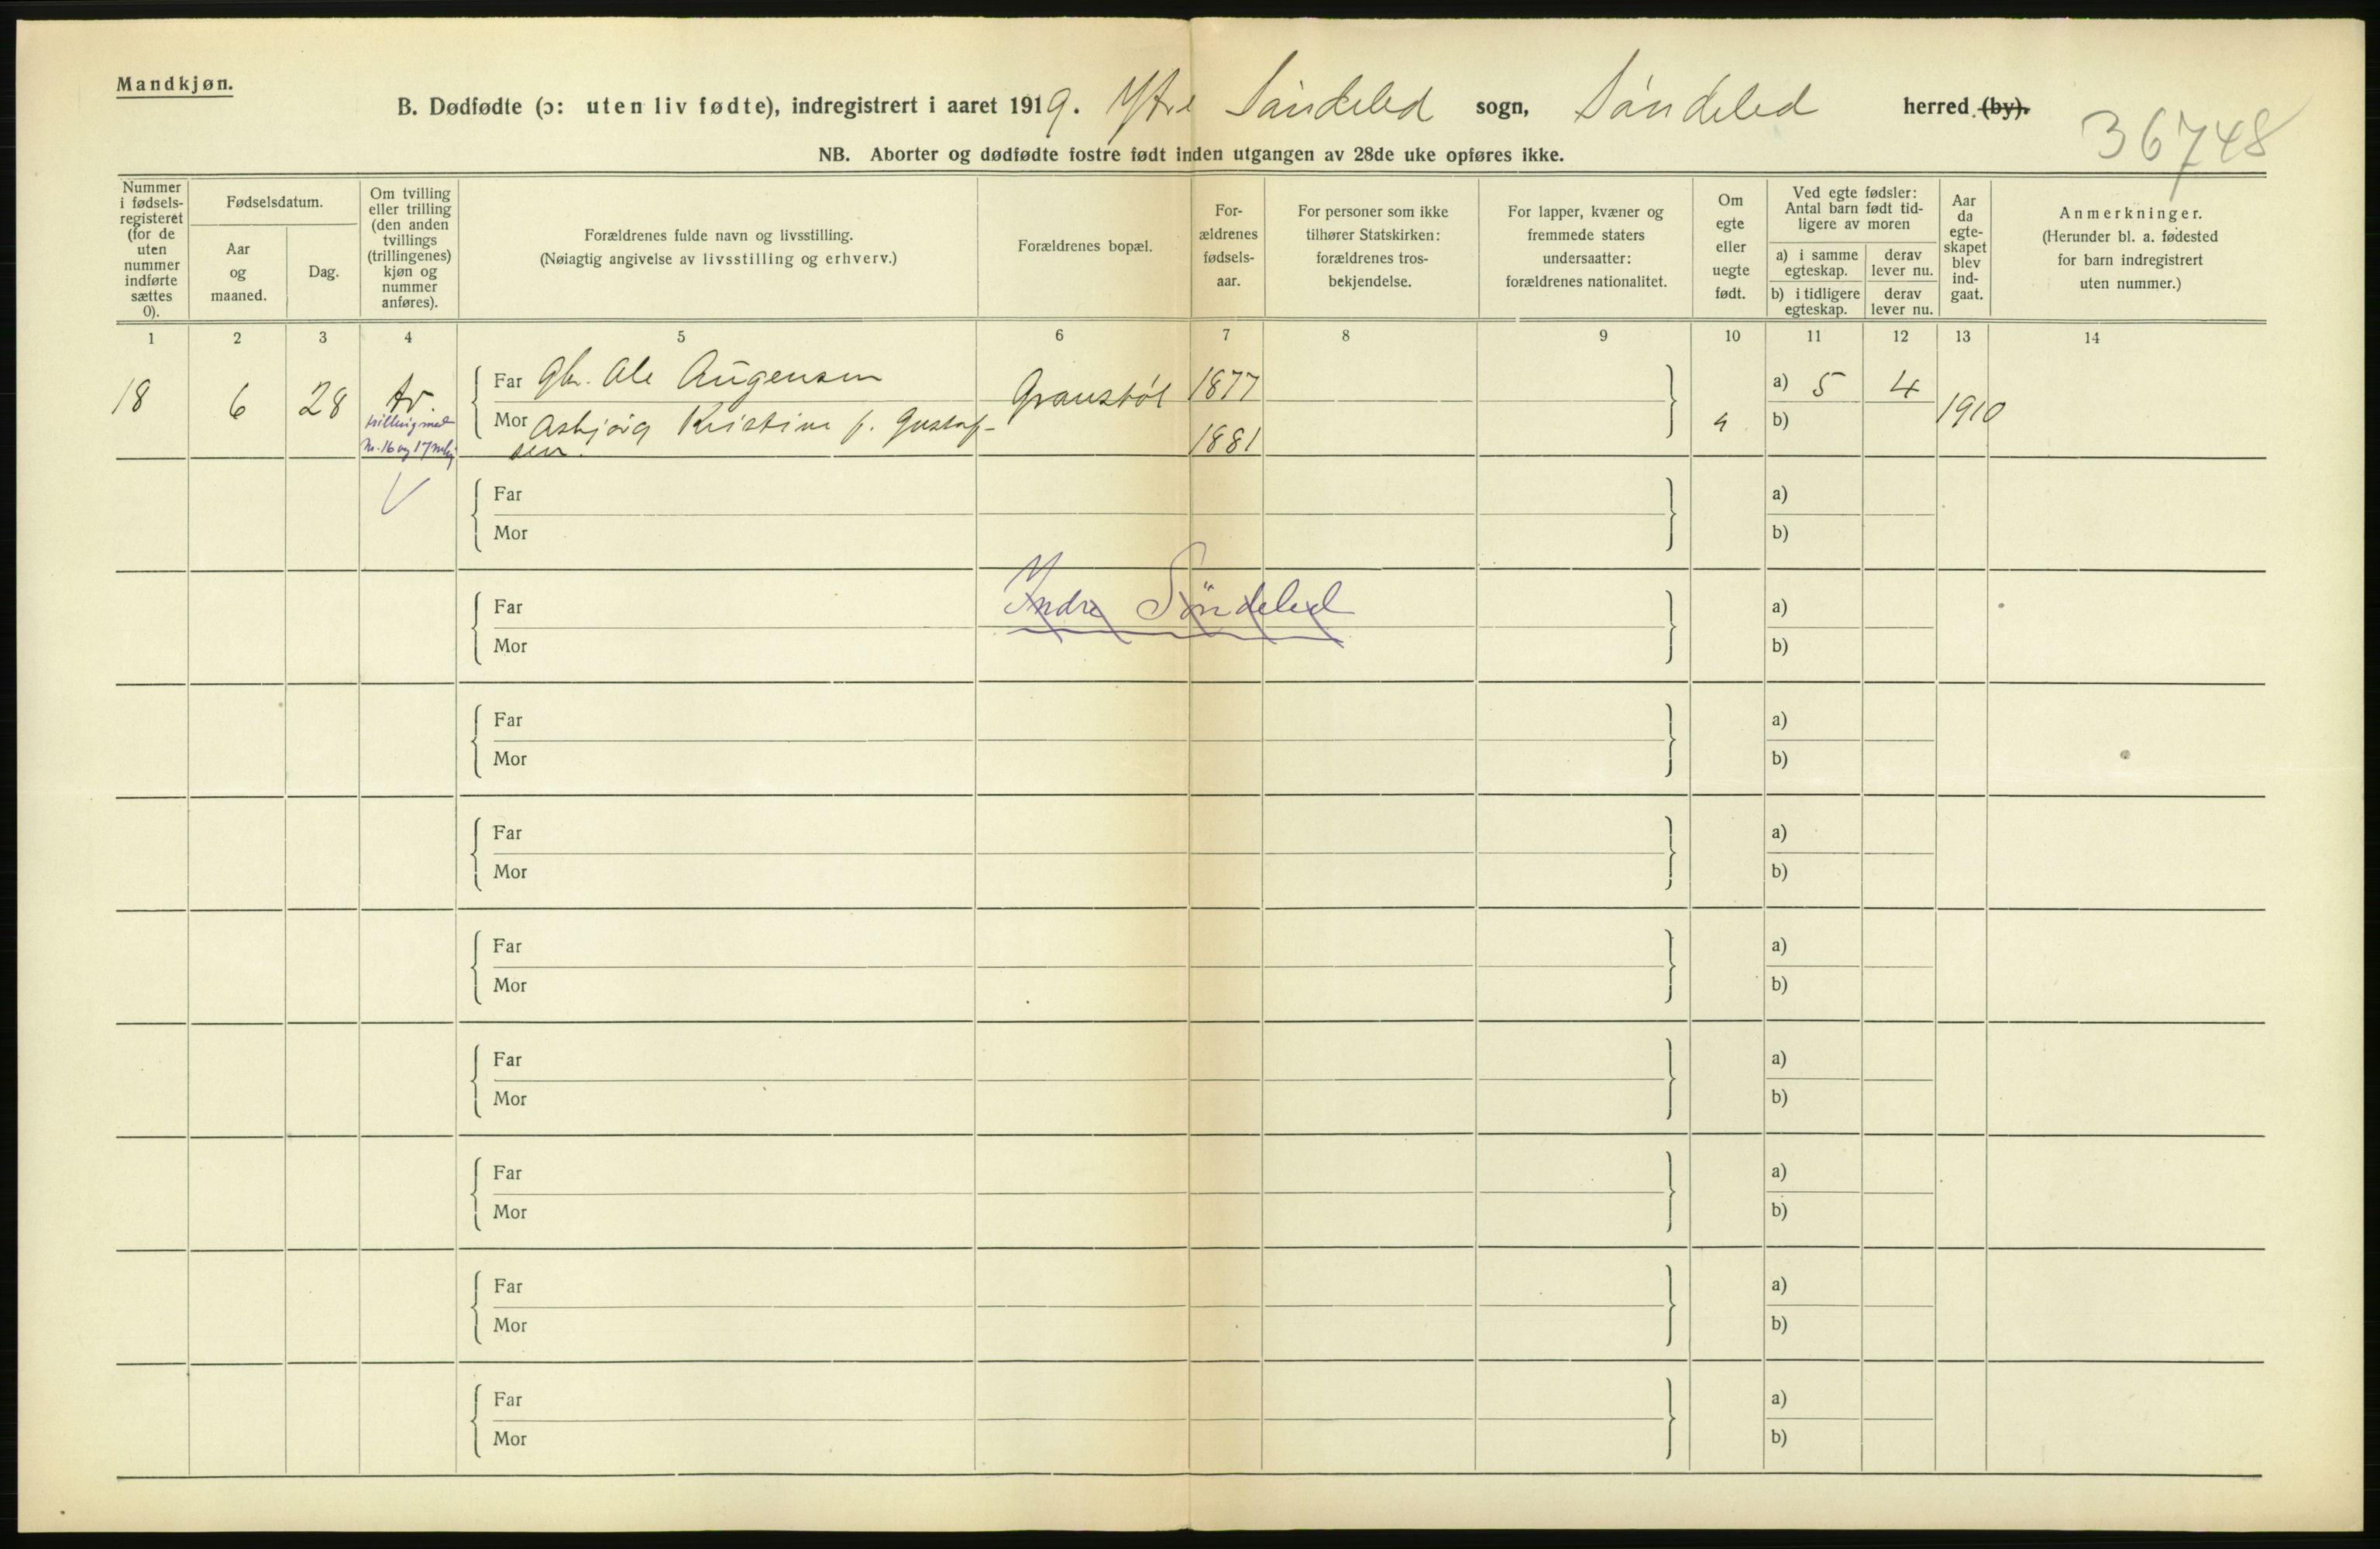 Mandkjøn.
B. Dødfødte (ɔ: uten liv fødte), indregistrert i aaret 1919. Ytre Søndeled sogn, Søndeled herred (by).
36748
NB. Aborter og dødfødte fostre født inden utgangen av 28de uke opføres ikke.
Nummer i fødsels-registeret (for de uten nummer indførte sættes 0).
Fødselsdatum.
Aar og maaned.
Dag.
Om tvilling eller trilling (den anden tvillings (trillingenes) kjøn og nummer anføres).
Forældrenes fulde navn og livsstilling.
(Nøiagtig angivelse av livsstilling og erhverv.)
Forældrenes bopæl.
For-ældrenes fødsels-aar.
For personer som ikke tilhører Statskirken: forældrenes tros-bekjendelse.
For lapper, kvæner og fremmede staters undersaatter: forældrenes nationalitet.
Om egte eller uegte født.
Ved egte fødsler: Antal barn født tid-ligere av moren
a) i samme egteskap.
derav lever nu.
b) i tidligere egteskap.
derav lever nu.
Aar da egte-skapet blev ind-gaat.
Anmerkninger.
(Herunder bl. a. fødested for barn indregistrert uten nummer.)
1 2 3 4 5 6 7 8 9 10 11 12 13 14
18 6 28
trilling med
Nr. 16 og 17
Far Gbr. Ole Augensen
Granstøl 1877
a) 5 4
Mor Asbjørg Kristine f. Gustaf-
sen.
1881
b)
1910
Far a)
Mor b)
Indre Søndeled
Far a)
Mor b)
Far a)
Mor b)
Far a)
Mor b)
Far a)
Mor b)
Far a)
Mor b)
Far a)
Mor b)
Far a)
Mor b)
Far a)
Mor b)